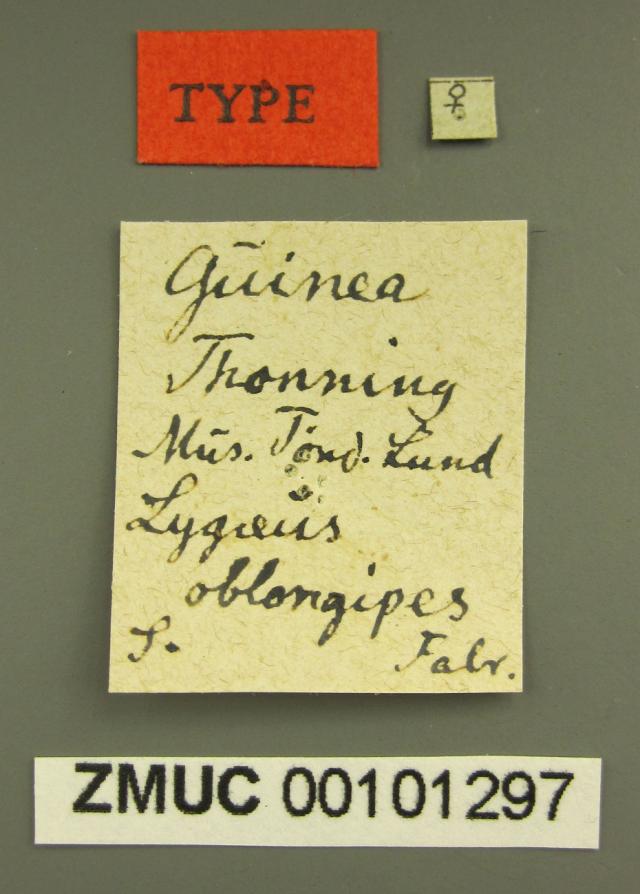 TYPE
♀
Guinea
Thonning
Mus. Tönd. Lund
Lygæus
oblongipes
S. Fabr.
ZMUC 00101297